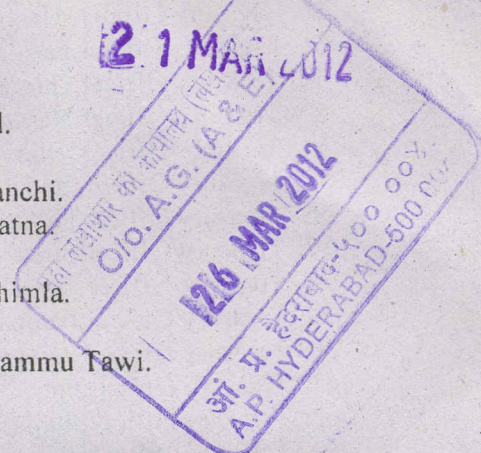 21 MAR 2012
anchi.
atna.
himla.
ammu Tawi.
का कार्यालय
O/o. A.G. (A & E)
26 MAR 2012
आं. प्र. हैदराबाद-५०० ००४.
A.P. HYDERABAD-500